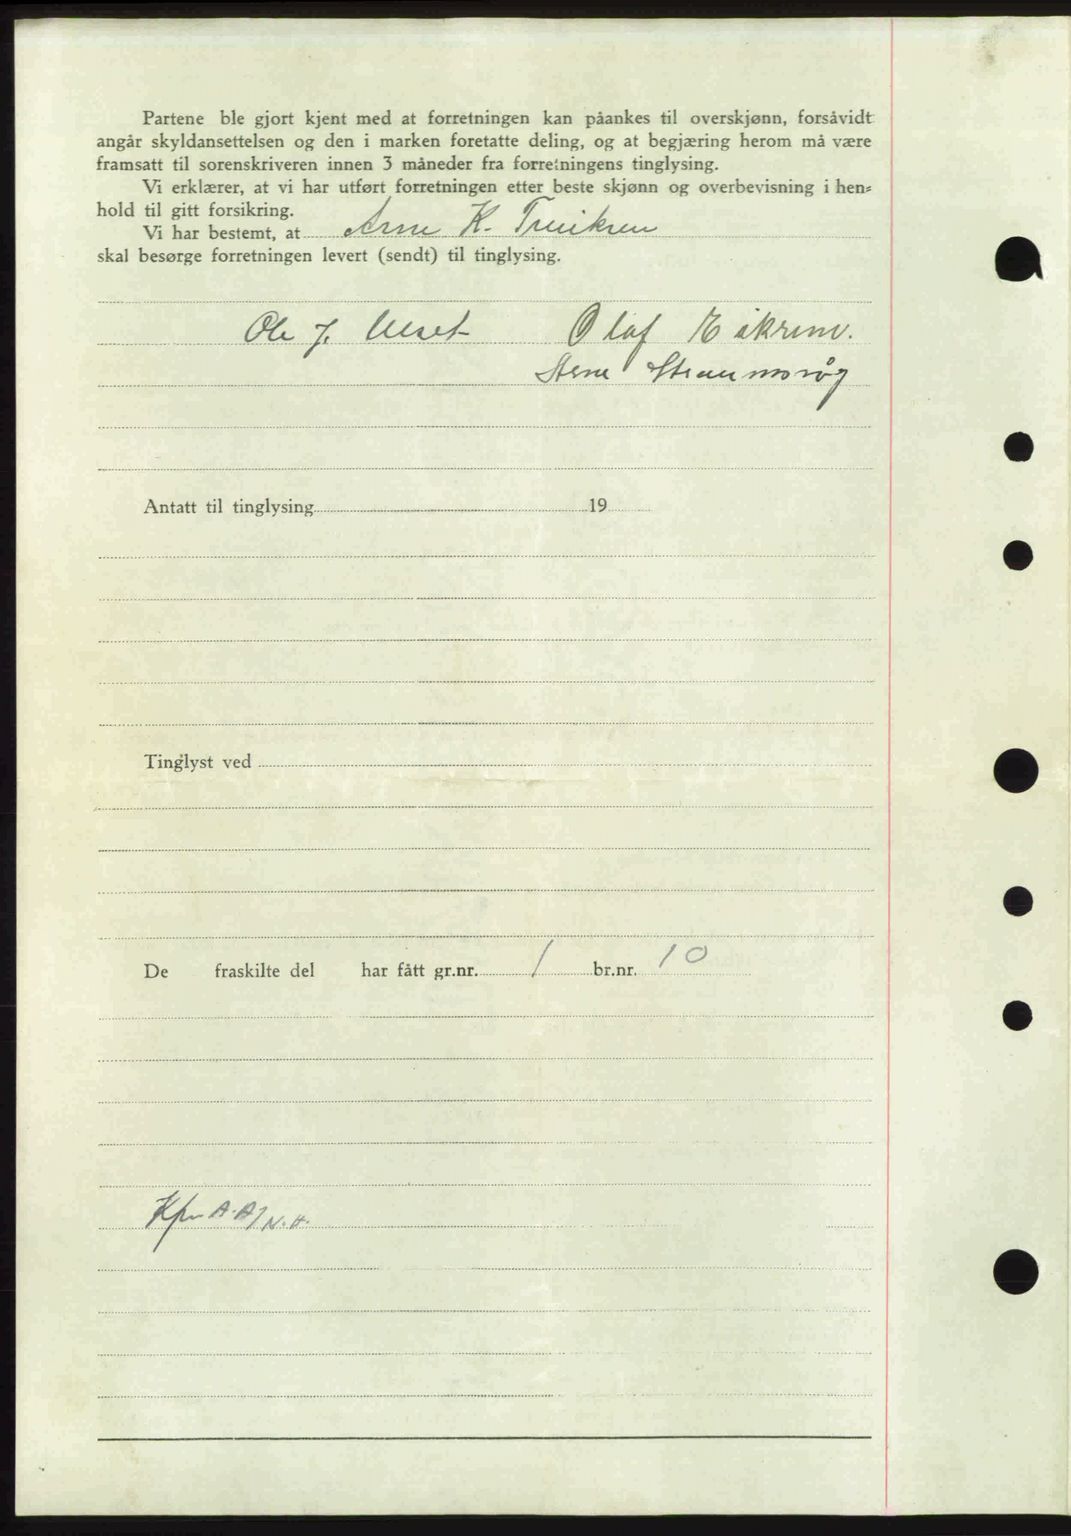 Partene ble gjort kjent med at forretningen kan påankes til overskjønn, forsåvidt
angår skyldansettelsen og den i marken foretatte deling, og at begjæring herom må være
framsatt til sorenskriveren innen 3 måneder fra forretningens tinglysing.
Vi erklærer, at vi har utført forretningen etter beste skjønn og overbevisning i hen-
hold til gitt forsikring.
Vi har bestemt, at Arne K.
skal besørge forretningen levert (sendt) til tinglysing.
Ole J. Ulset Olaf Eikrem.
Arne
Antatt til tinglysing 19
Tinglyst ved
De fraskilte del har fått gr.nr. 1 br.nr. 10
A.A/N.H.